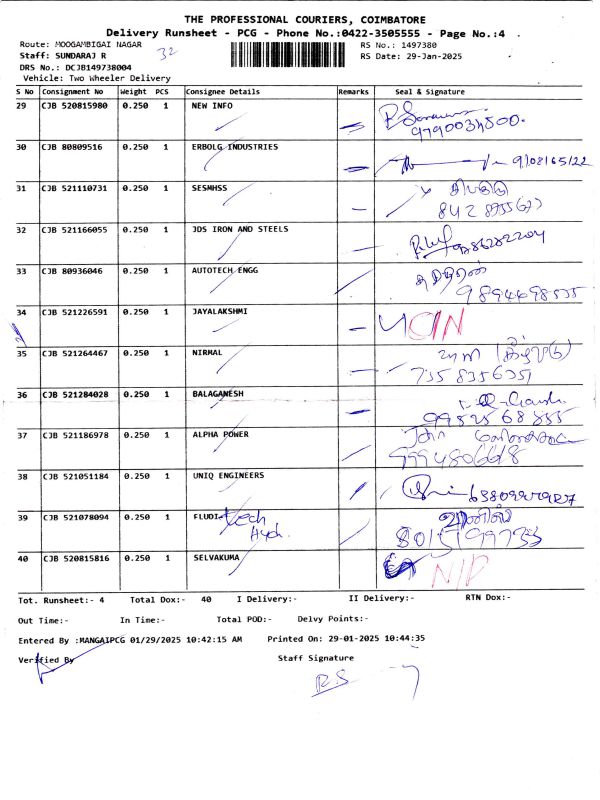 THE PROFESSIONAL COURIERS, COIMBATORE
Delivery Runsheet - PCG - Phone No.:0422-3505555 - Page No.:4
Route: MOOGAMBIGAI NAGAR RS No.: 1497380
Staff: SUNDARAJ R 32 RS Date: 29-Jan-2025
DRS No.: DCJB149738004
Vehicle: Two Wheeler Delivery
S No Consignment No Weight PCS Consignee Details Remarks Seal & Signature
29 CJB 520815980 0.250 1 NEW INFO
30 CJB 80809516 0.250 1 ERBOLG INDUSTRIES
31 CJB 521110731 0.250 1 SESMHSS
32 CJB 521166055 0.250 1 JDS IRON AND STEELS
33 CJB 80936046 0.250 1 AUTOTECH ENGG
9894498535
34 CJB 521226591 0.250 1 JAYALAKSHMI
35 CJB 521264467 0.250 1 NIRMAL
7358356351
36 CJB 521284028 0.250 1 BALAGANESH
9952568855
37 CJB 521186978 0.250 1 ALPHA POWER John
9994806668
38 CJB 521051184 0.250 1 UNIQ ENGINEERS
39 CJB 521078094 0.250 1 FLUDI-tech
40 CJB 520815816 0.250 1 SELVAKUMA
Tot. Runsheet:- 4 Total Dox:- 40 I Delivery:- II Delivery:- RTN Dox:-
Out Time:- In Time:- Total POD:- Delvy Points:-
Entered By :MANGAIPCG 01/29/2025 10:42:15 AM Printed On: 29-01-2025 10:44:35
Verified By Staff Signature
R.S